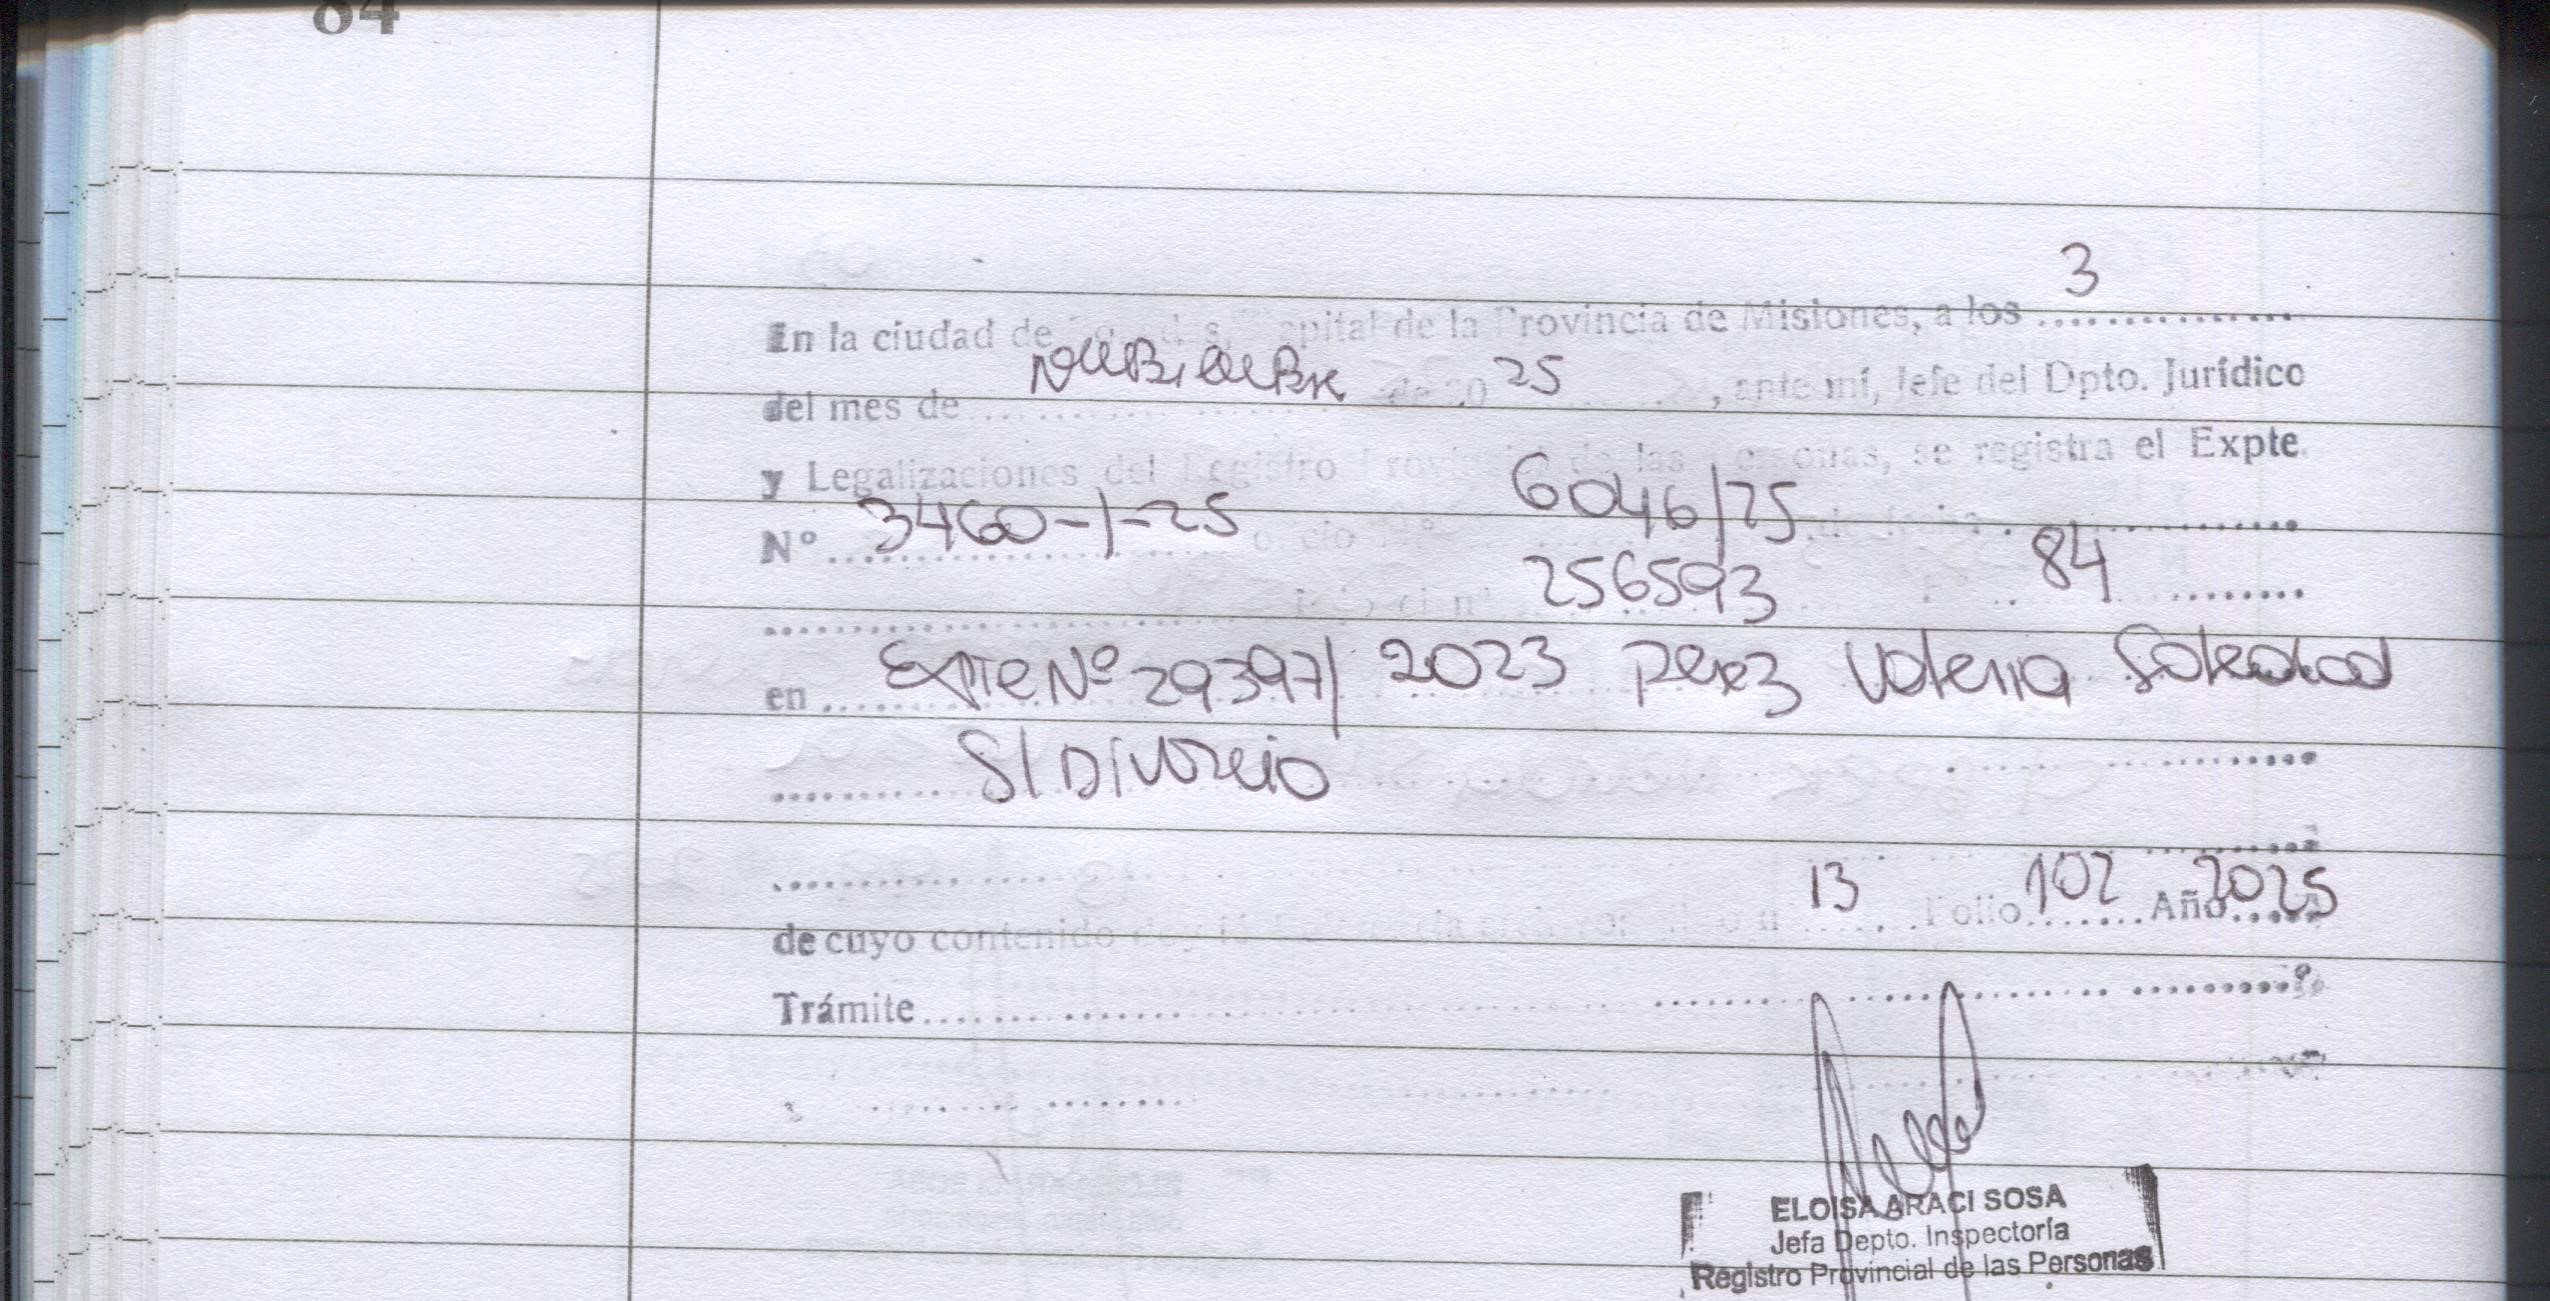 84
3
En la ciudad de Posadas, Capital de la Provincia de Misiones, a los ...............
del mes de NOVBIEMBRE de 20 25 , ante mí, Jefe del Dpto. Jurídico
y Legalizaciones del Registro Provincial de las Personas, se registra el Expte.
N° 3460-1-25 oficio N° 6046/25 de fecha
256593 84
en Expte Nº 29397/2023 Perez Valeria Soledad
S/DIVORCIO
de cuyo contenido doy fé 13 Folio 102 Año 2025
Trámite
ELOISA ARACI SOSA
Jefa Depto. Inspectoría
Registro Provincial de las Personas